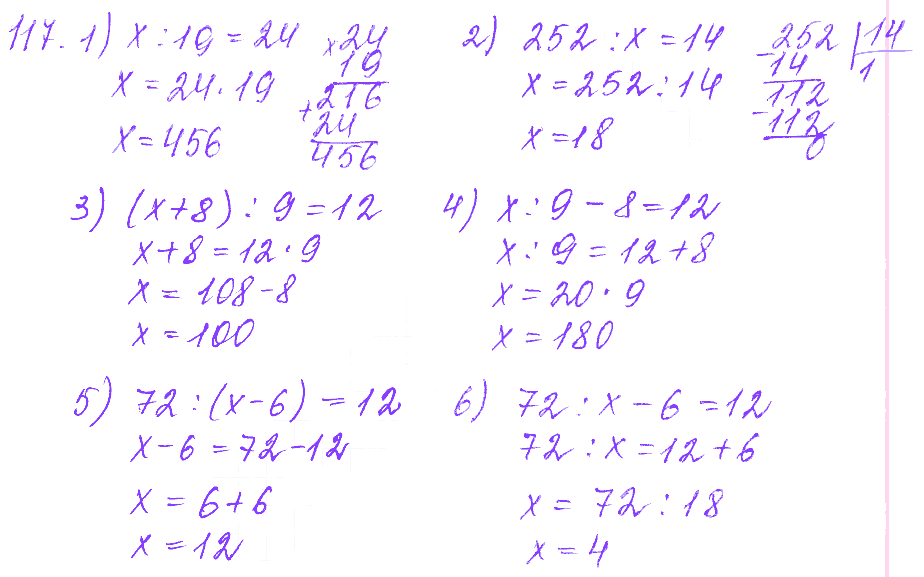 117. 1) x : 19 = 24
x = 24 · 19
x = 456
× 24
19
216
+ 24
456
2) 252 : x = 14
x = 252 : 14
x = 18
- 252 | 14
14 1
112
- 112
0
3) (x+8) : 9 = 12
x+8 = 12 · 9
x = 108 - 8
x = 100
4) x : 9 - 8 = 12
x : 9 = 12 + 8
x = 20 · 9
x = 180
5) 72 : (x - 6) = 12
x - 6 = 72 - 12
x = 6 + 6
x = 12
6) 72 : x - 6 = 12
72 : x = 12 + 6
x = 72 : 18
x = 4